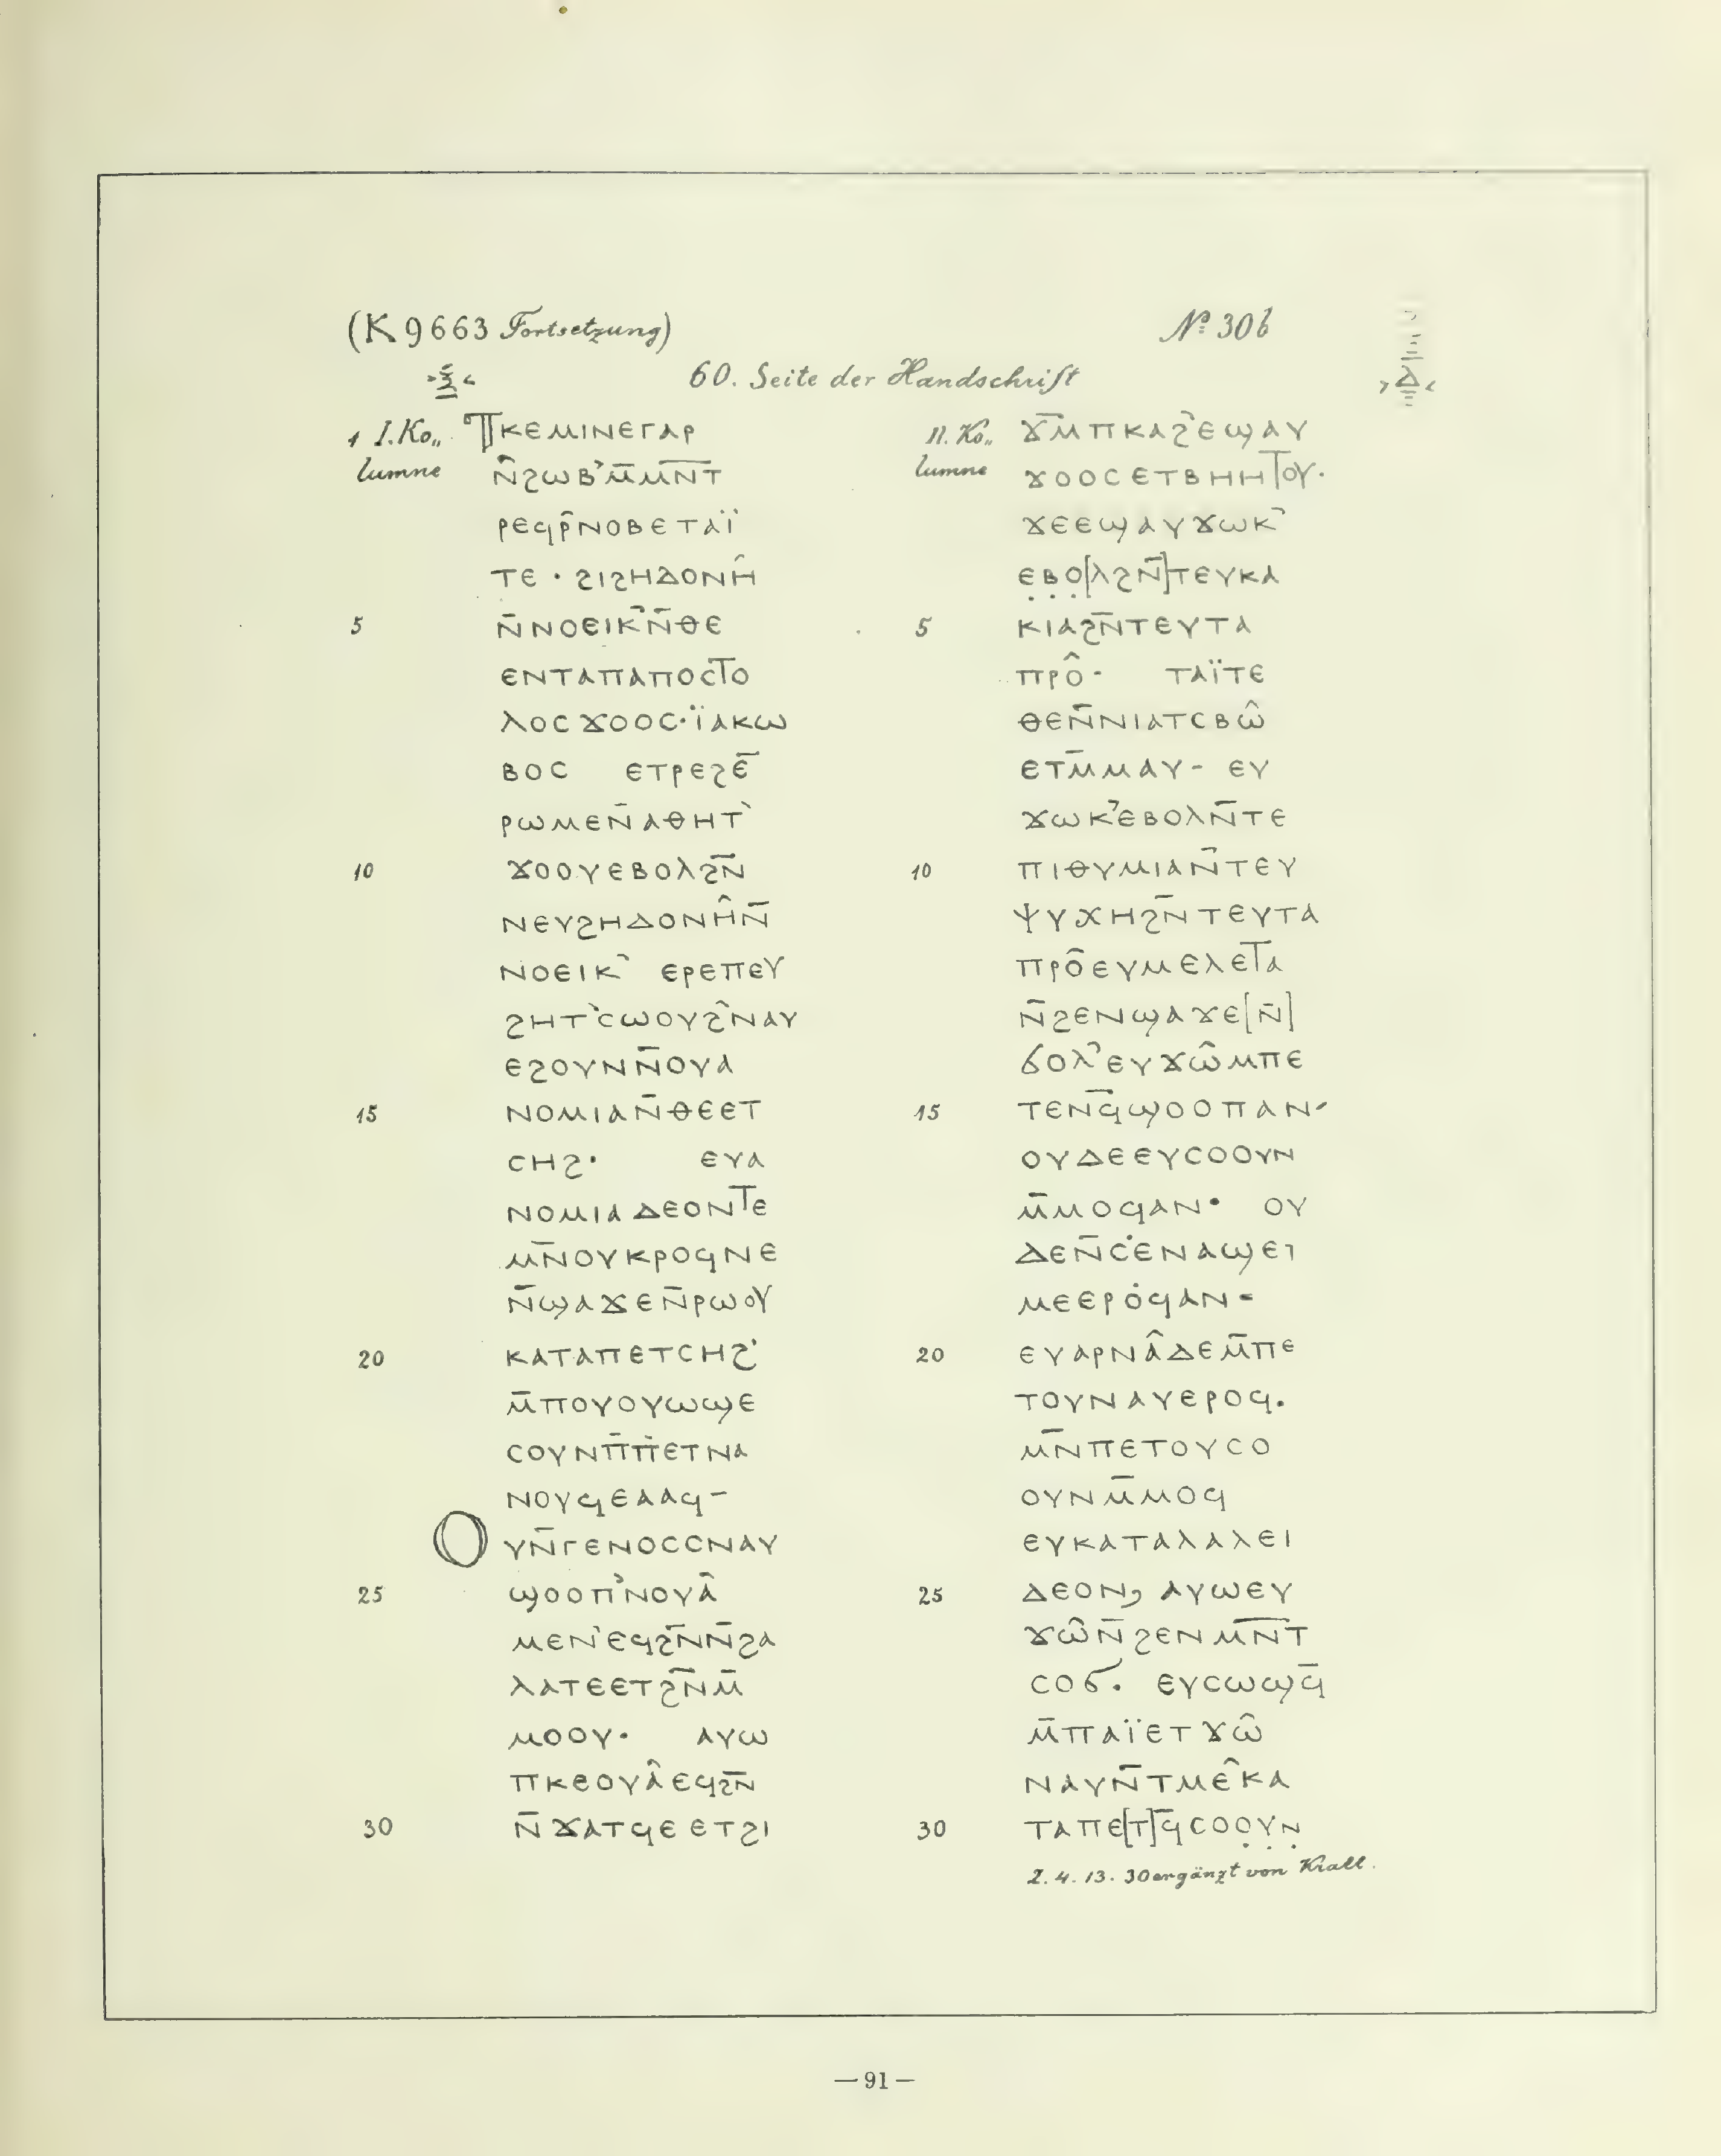 (K 9663 Fortsetzung) № 30b
›ⲝ‹ 60. Seite der Handschrift ›ⲇ‹
1 I. Ko„ ⲡⲕⲉⲙⲓⲛⲉⲅⲁⲣ
lumne ⲛ̂ϩⲱⲃ̓ⲙ̄ⲙⲛ̅ⲧ̅
ⲣⲉϥⲣ̂ⲛⲟⲃⲉⲧⲁⲓ̈
ⲧⲉ · ϩⲓϩⲏⲇⲟⲛⲏ̂
5 ⲛ̄ⲛⲟⲉⲓⲕ̓ⲛ̄ⲑⲉ
ⲉⲛⲧⲁⲡⲁⲡⲟⲥⲧⲟ
ⲗⲟⲥϫⲟⲟⲥ·ⲓ̈ⲁⲕⲱ
ⲃⲟⲥ ⲉⲧⲣⲉϩⲉ̄
ⲣⲱⲙⲉⲛ̄ⲁⲑⲏⲧ̀
10 ϫⲟⲟⲩⲉⲃⲟⲗϩⲛ̄
ⲛⲉⲩϩⲏⲇⲟⲛⲏ̂ⲛ̄
ⲛⲟⲉⲓⲕ̓ ⲉⲣⲉⲡⲉⲩ
ϩⲏⲧ̀ⲥⲱⲟⲩϩ̂ⲛⲁⲩ
ⲉϩⲟⲩⲛⲛ̄ⲟⲩⲁ
15 ⲛⲟⲙⲓⲁⲛ̄ⲑⲉⲉⲧ
ⲥⲏϩ· ⲉⲩⲁ
ⲛⲟⲙⲓⲁⲇⲉⲟⲛⲧⲉ
ⲙⲛ̄ⲟⲩⲕⲣⲟϥⲛⲉ
ⲛ̄ϣⲁϫⲉⲛ̄ⲣⲱⲟⲩ
20 ⲕⲁⲧⲁⲡⲉⲧⲥⲏϩ̓
ⲙ̄ⲡⲟⲩⲟⲩⲱϣⲉ
ⲥⲟⲩⲛⲡ̄ⲡ̇ⲉⲧⲛⲁ
ⲛⲟⲩϥⲉⲁⲁϥ–
Ⲟⲩⲛ̄ⲅⲉⲛⲟⲥⲥⲛⲁⲩ
25 ϣⲟⲟⲡ̓ⲛⲟⲩⲁ̂
ⲙⲉⲛ̀ⲉϥϩⲛ̄ⲛ̄ϩⲁ
ⲗⲁⲧⲉⲉⲧϩⲛ̄ⲙ̄
ⲙⲟⲟⲩ· ⲁⲩⲱ
ⲡⲕⲉⲟⲩⲁ̂ⲉϥϩⲛ̄
30 ⲛ̄ϫⲁⲧϥⲉⲉⲧϩⲓ
II. Ko„ ϫⲙ̄ⲡⲕⲁϩ̓ⲉϣⲁⲩ
lumne ϫⲟⲟⲥⲉⲧⲃⲏⲏⲧⲟⲩ·
ϫⲉⲉϣⲁⲩϫⲱⲕ̓
ⲉ̣ⲃ̣ⲟ̣[ⲗϩⲛ̄]ⲧⲉⲩⲕⲁ
5 ⲕⲓⲁϩⲛ̄ⲧⲉⲩⲧⲁ
ⲡⲣⲟ̂· ⲧⲁⲓ̈ⲧⲉ
ⲑⲉⲛ̄ⲛⲓⲁⲧⲥⲃⲱ̂
ⲉⲧⲙ̄ⲙⲁⲩ– ⲉⲩ
ϫⲱⲕ̓ⲉⲃⲟⲗⲛ̄ⲧⲉ
10 ⲡⲓⲑⲩⲙⲓⲁⲛ̄ⲧⲉⲩ
ⲯⲩⲭⲏϩⲛ̄ⲧⲉⲩⲧⲁ
ⲡⲣⲟ̂ⲉⲩⲙⲉⲗⲉⲧⲁ
ⲛ̄ϩⲉⲛϣⲁϫⲉ[ⲛ̄]
ϭⲟⲗ̓ⲉⲩϫⲱ̂ⲙⲡⲉ
15 ⲧⲉⲛϥ̄ϣⲟⲟⲡⲁⲛ·
ⲟⲩⲇⲉⲉⲩⲥⲟⲟⲩⲛ
ⲙ̄ⲙⲟϥⲁⲛ· ⲟⲩ
ⲇⲉⲛ̄ⲥ̇ⲉⲛⲁϣⲉⲓ
ⲙⲉⲉⲣⲟ̇ϥⲁⲛ·
20 ⲉⲩⲁⲣⲛⲁ̂ⲇⲉⲙ̄ⲡⲉ
ⲧⲟⲩⲛⲁⲩⲉⲣⲟϥ.
ⲙⲛ̄ⲡⲉⲧⲟⲩⲥⲟ
ⲟⲩⲛⲙ̄ⲙⲟϥ
ⲉⲩⲕⲁⲧⲁⲗⲁⲗⲉⲓ
25 ⲇⲉⲟⲛ, ⲁⲩⲱⲉⲩ
ϫⲱ̂ⲛ̄ϩⲉⲛⲙⲛ̅ⲧ̅
ⲥⲟϭ. ⲉⲩⲥⲱϣϥ̄
ⲙ̄ⲡⲁⲓ̈ⲉⲧϫⲱ̂
ⲛⲁⲩⲛ̄ⲧⲙⲉ̂ⲕⲁ
30 ⲧⲁⲡⲉ[ⲧ]ϥ̄ⲥⲟⲟ̣ⲩ̣ⲛ̣
2. 4. 13. 30 ergänzt von Krall.
— 91 —